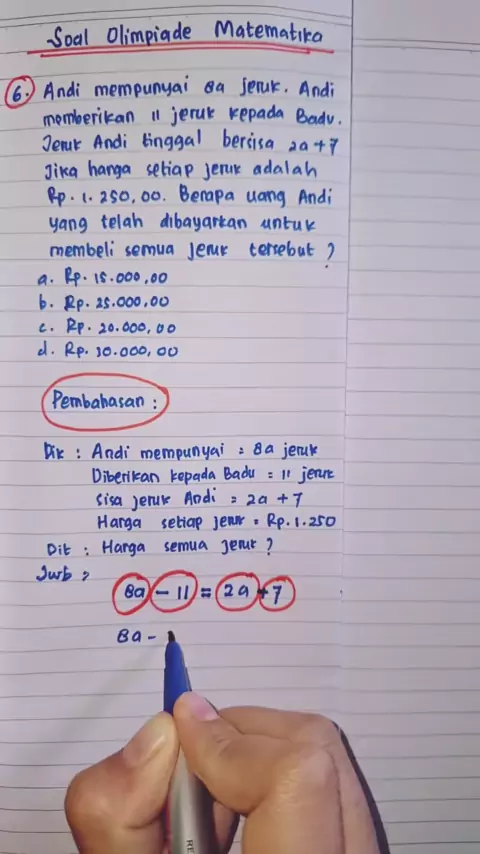 Soal Olimpiade Matematika
6. Andi mempunyai 8a jeruk. Andi
memberikan 11 jeruk kepada Badu.
Jeruk Andi tinggal bersisa 2a+7
Jika harga setiap jeruk adalah
Rp. 1.250,00. Berapa uang Andi
yang telah dibayarkan untuk
membeli semua jeruk tersebut ?
a. Rp. 15.000,00
b. Rp. 25.000,00
c. Rp. 20.000,00
d. Rp. 30.000,00
Pembahasan :
Dik : Andi mempunyai = 8a jeruk
Diberikan kepada Badu = 11 jeruk
Sisa jeruk Andi = 2a + 7
Harga setiap jeruk = Rp. 1.250
Dit : Harga semua jeruk ?
Jwb :
8a - 11 = 2a + 7
8a -